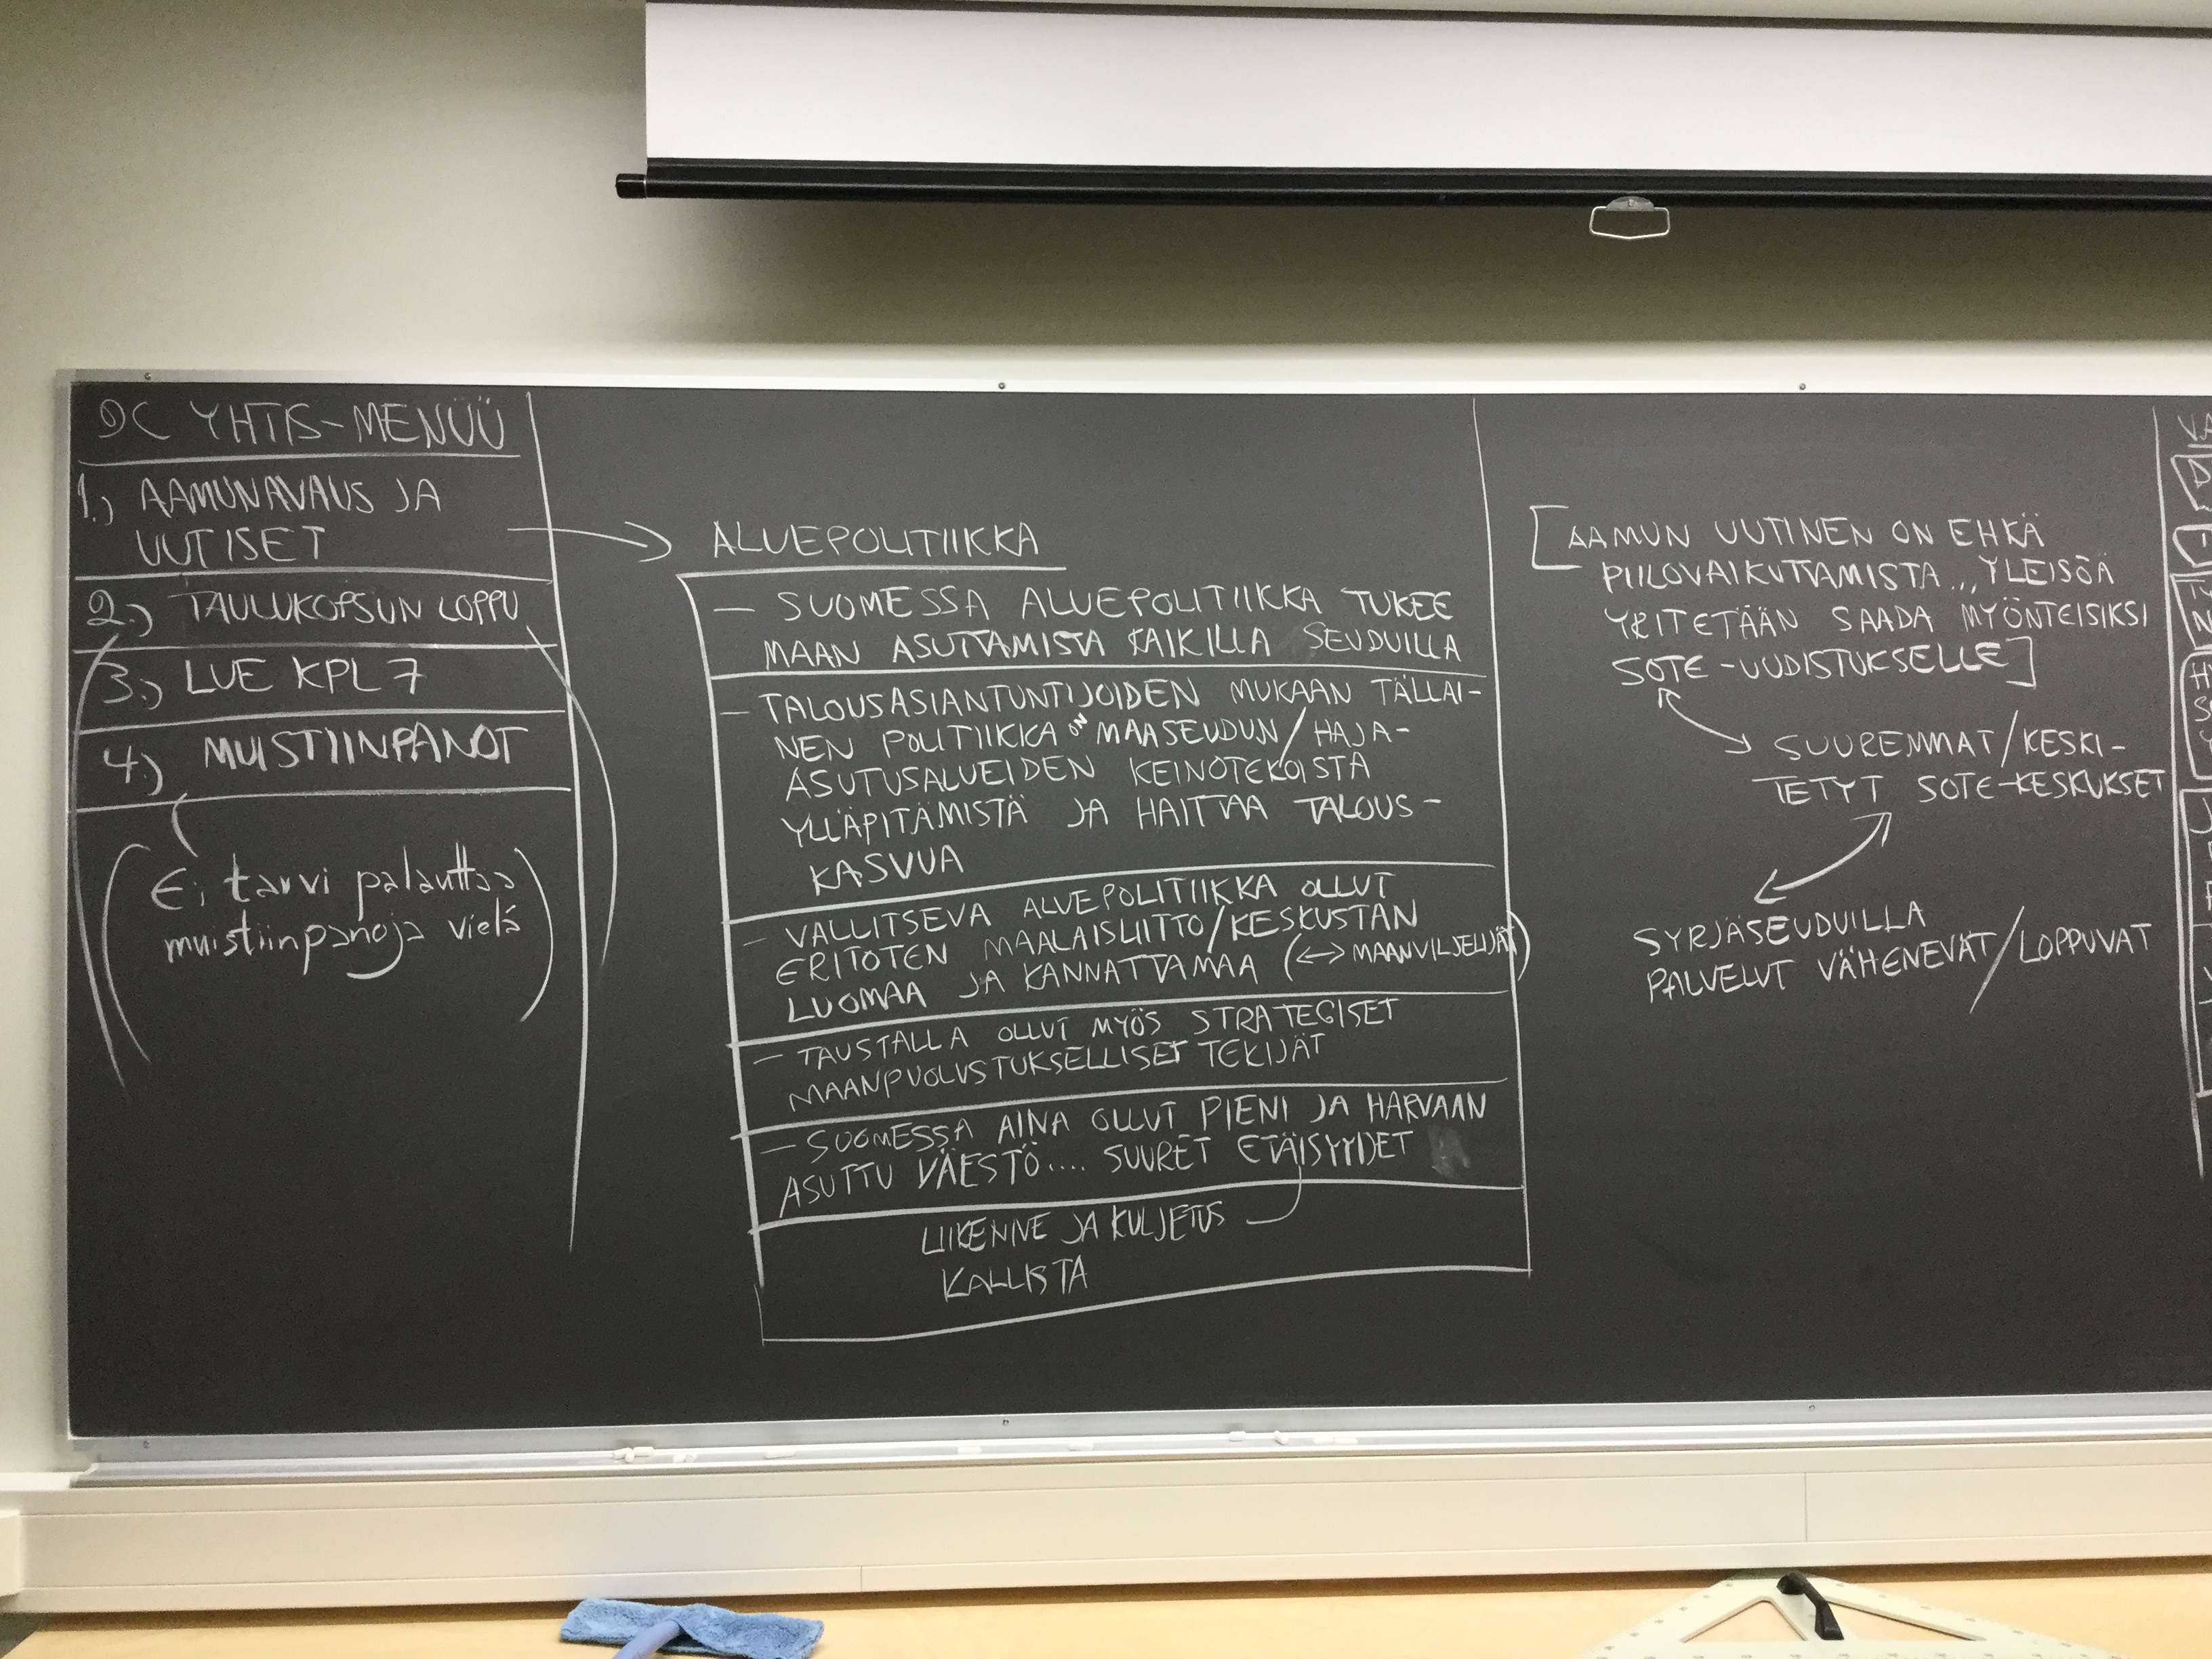 9C YHTIS-MENÜÜ
1.) AAMUNAVAUS JA
UUTISET
2.) TAULUKOPSUN LOPPU
3.) LUE KPL 7
4.) MUISTIINPANOT
(Ei tarvi palauttaa
muistiinpanoja vielä)
ALUEPOLITIIKKA
– SUOMESSA ALUEPOLITIIKKA TUKEE
MAAN ASUTTAMISTA KAIKILLA SEUDUILLA
– TALOUSASIANTUNTIJOIDEN MUKAAN TÄLLAI-
NEN POLITIIKKA ON MAASEUDUN/HAJA-
ASUTUSALUEIDEN KEINOTEKOISTA
YLLÄPITÄMISTÄ JA HAITTAA TALOUS-
KASVUA
– VALLITSEVA ALUEPOLITIIKKA OLLUT
ERITOTEN MAALAISLIITTO/KESKUSTAN
LUOMAA JA KANNATTAMAA (↔ MAANVILJELIJÄT)
– TAUSTALLA OLLUT MYÖS STRATEGISET
MAANPUOLUSTUKSELLISET TEKIJÄT
– SUOMESSA AINA OLLUT PIENI JA HARVAAN
ASUTTU VÄESTÖ.... SUURET ETÄISYYDET
LIIKENNE JA KULJETUS
KALLISTA
[AAMUN UUTINEN ON EHKÄ
PIILOVAIKUTTAMISTA... YLEISÖÄ
YRITETÄÄN SAADA MYÖNTEISIKSI
SOTE-UUDISTUKSELLE]
SUUREMMAT/KESKI-
TETYT SOTE-KESKUKSET
SYRJÄSEUDUILLA
PALVELUT VÄHENEVÄT/LOPPUVAT